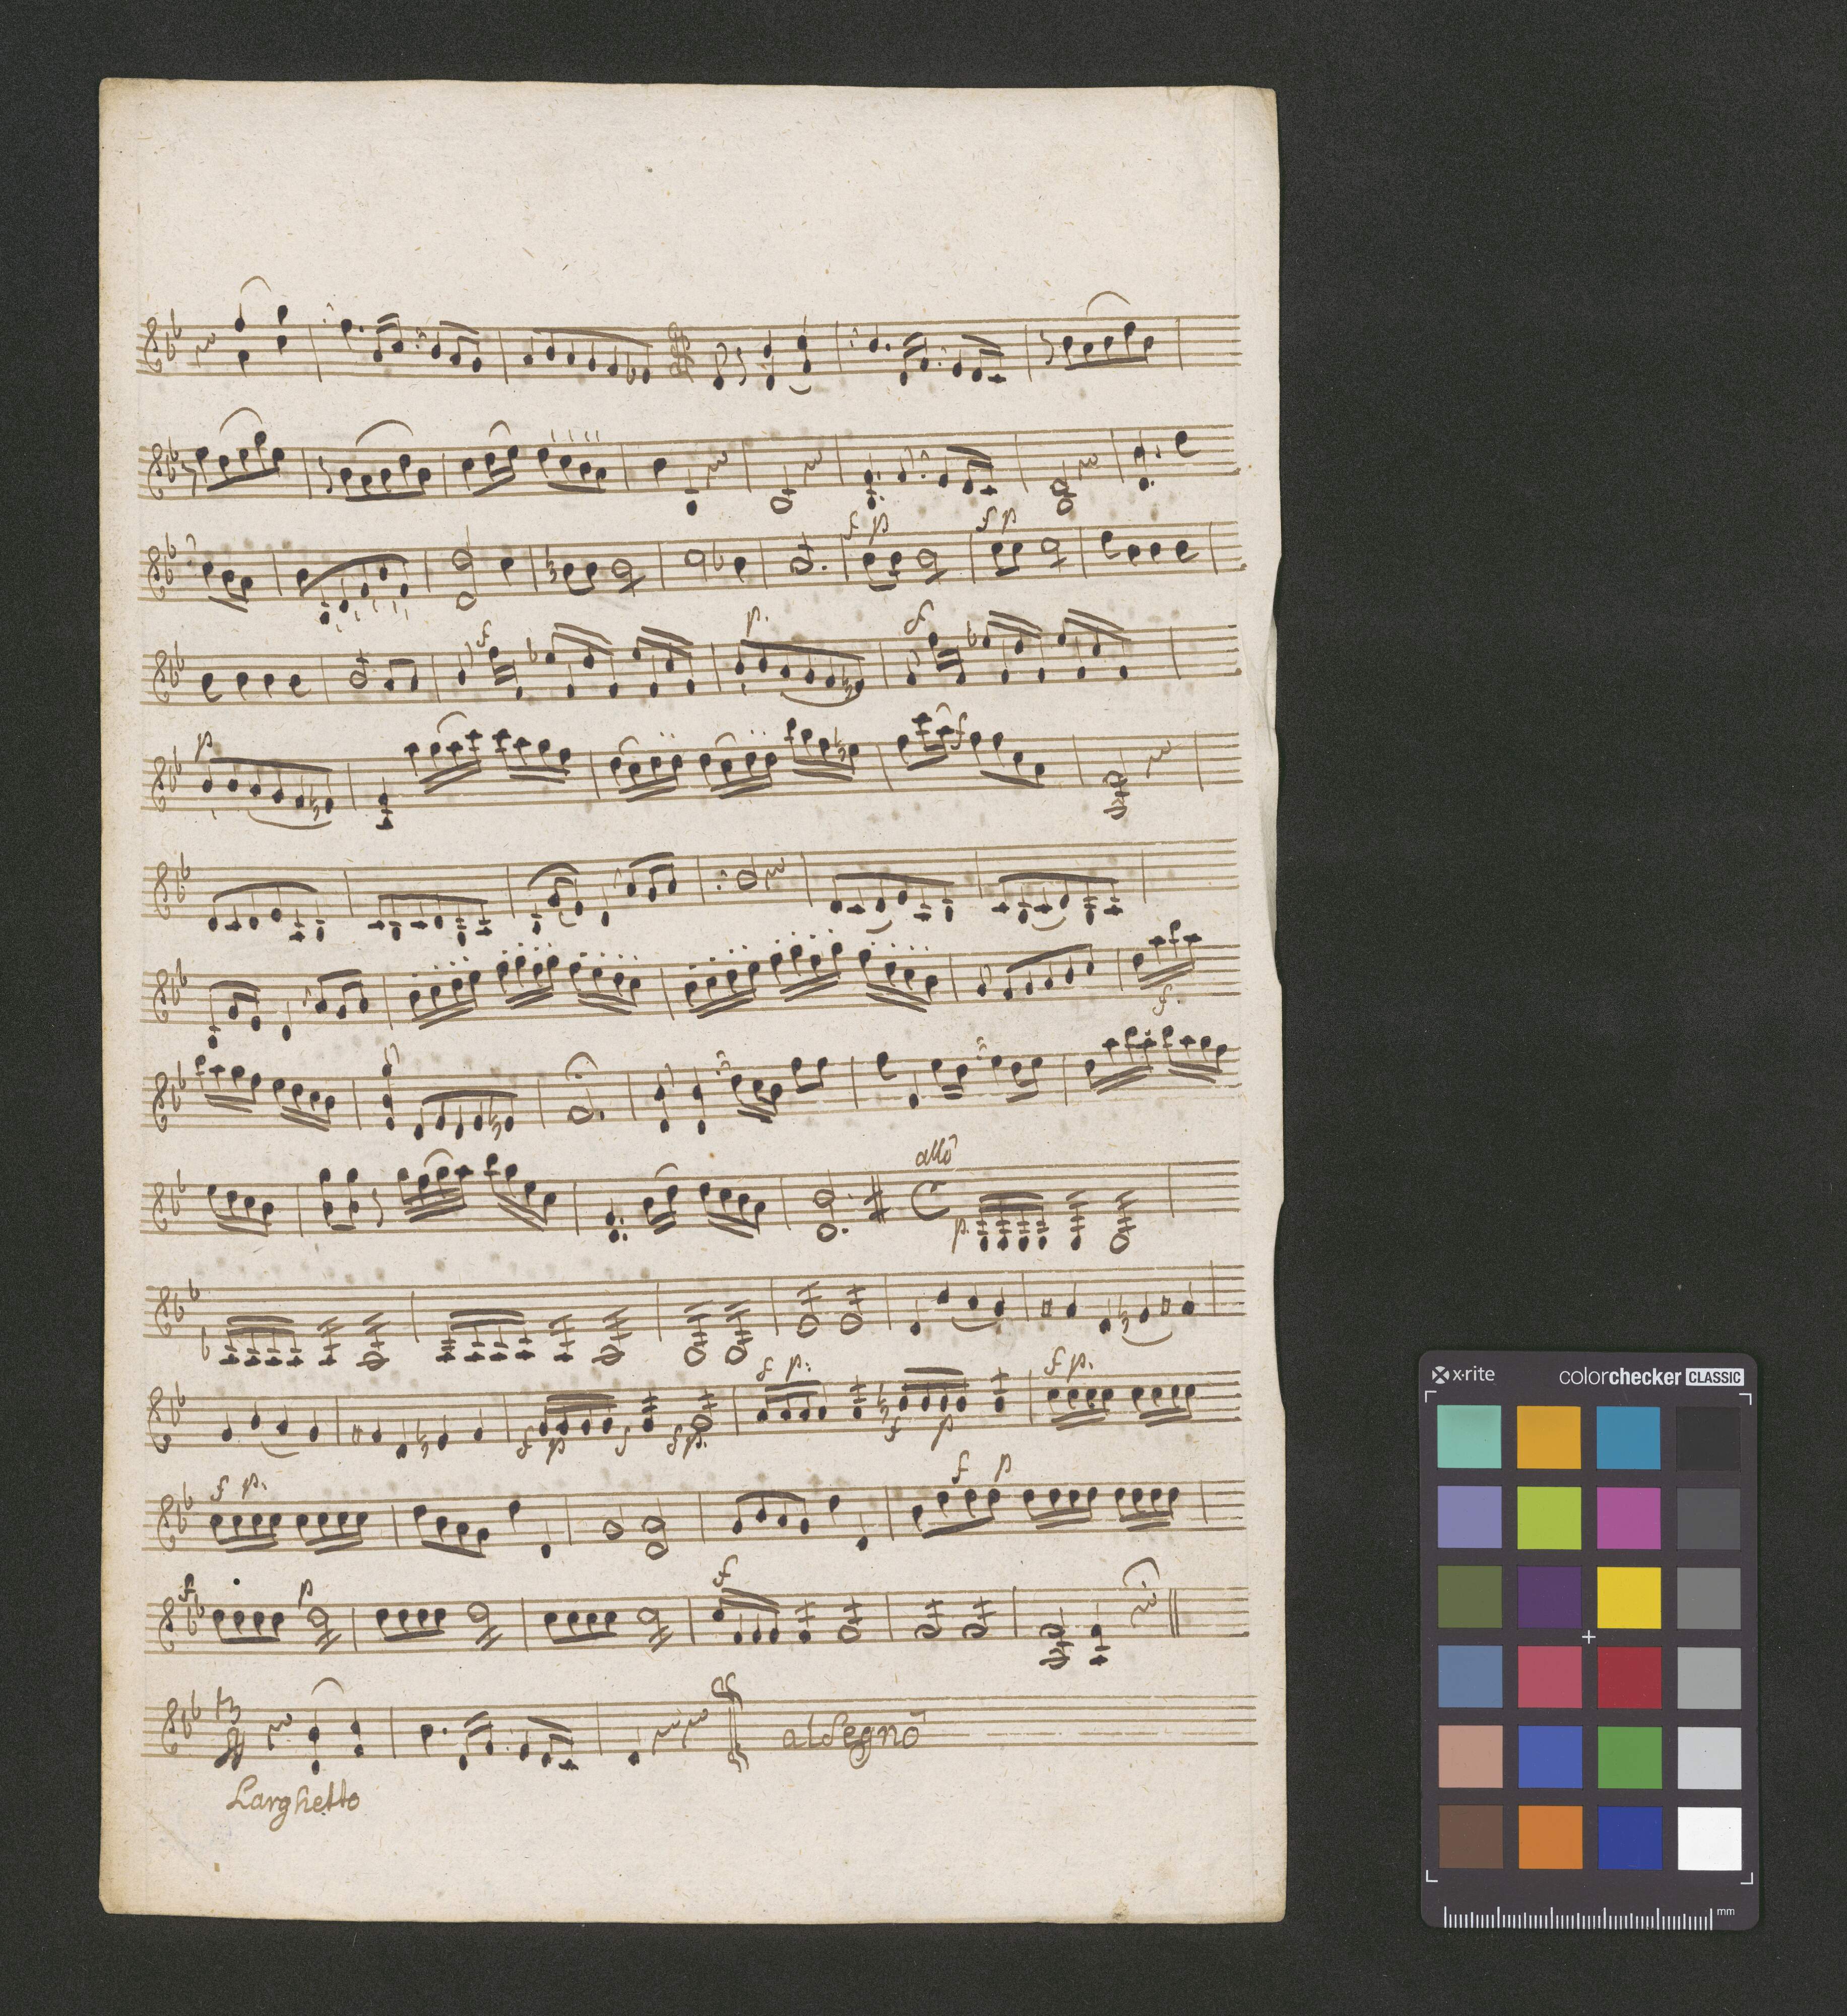 f p f p
f p. f
p
f.
allo
p.
f p. f p.
f p f f p. f p
f p. f p
f p f
al Segno
Larghetto
x·rite colorchecker CLASSIC
mm